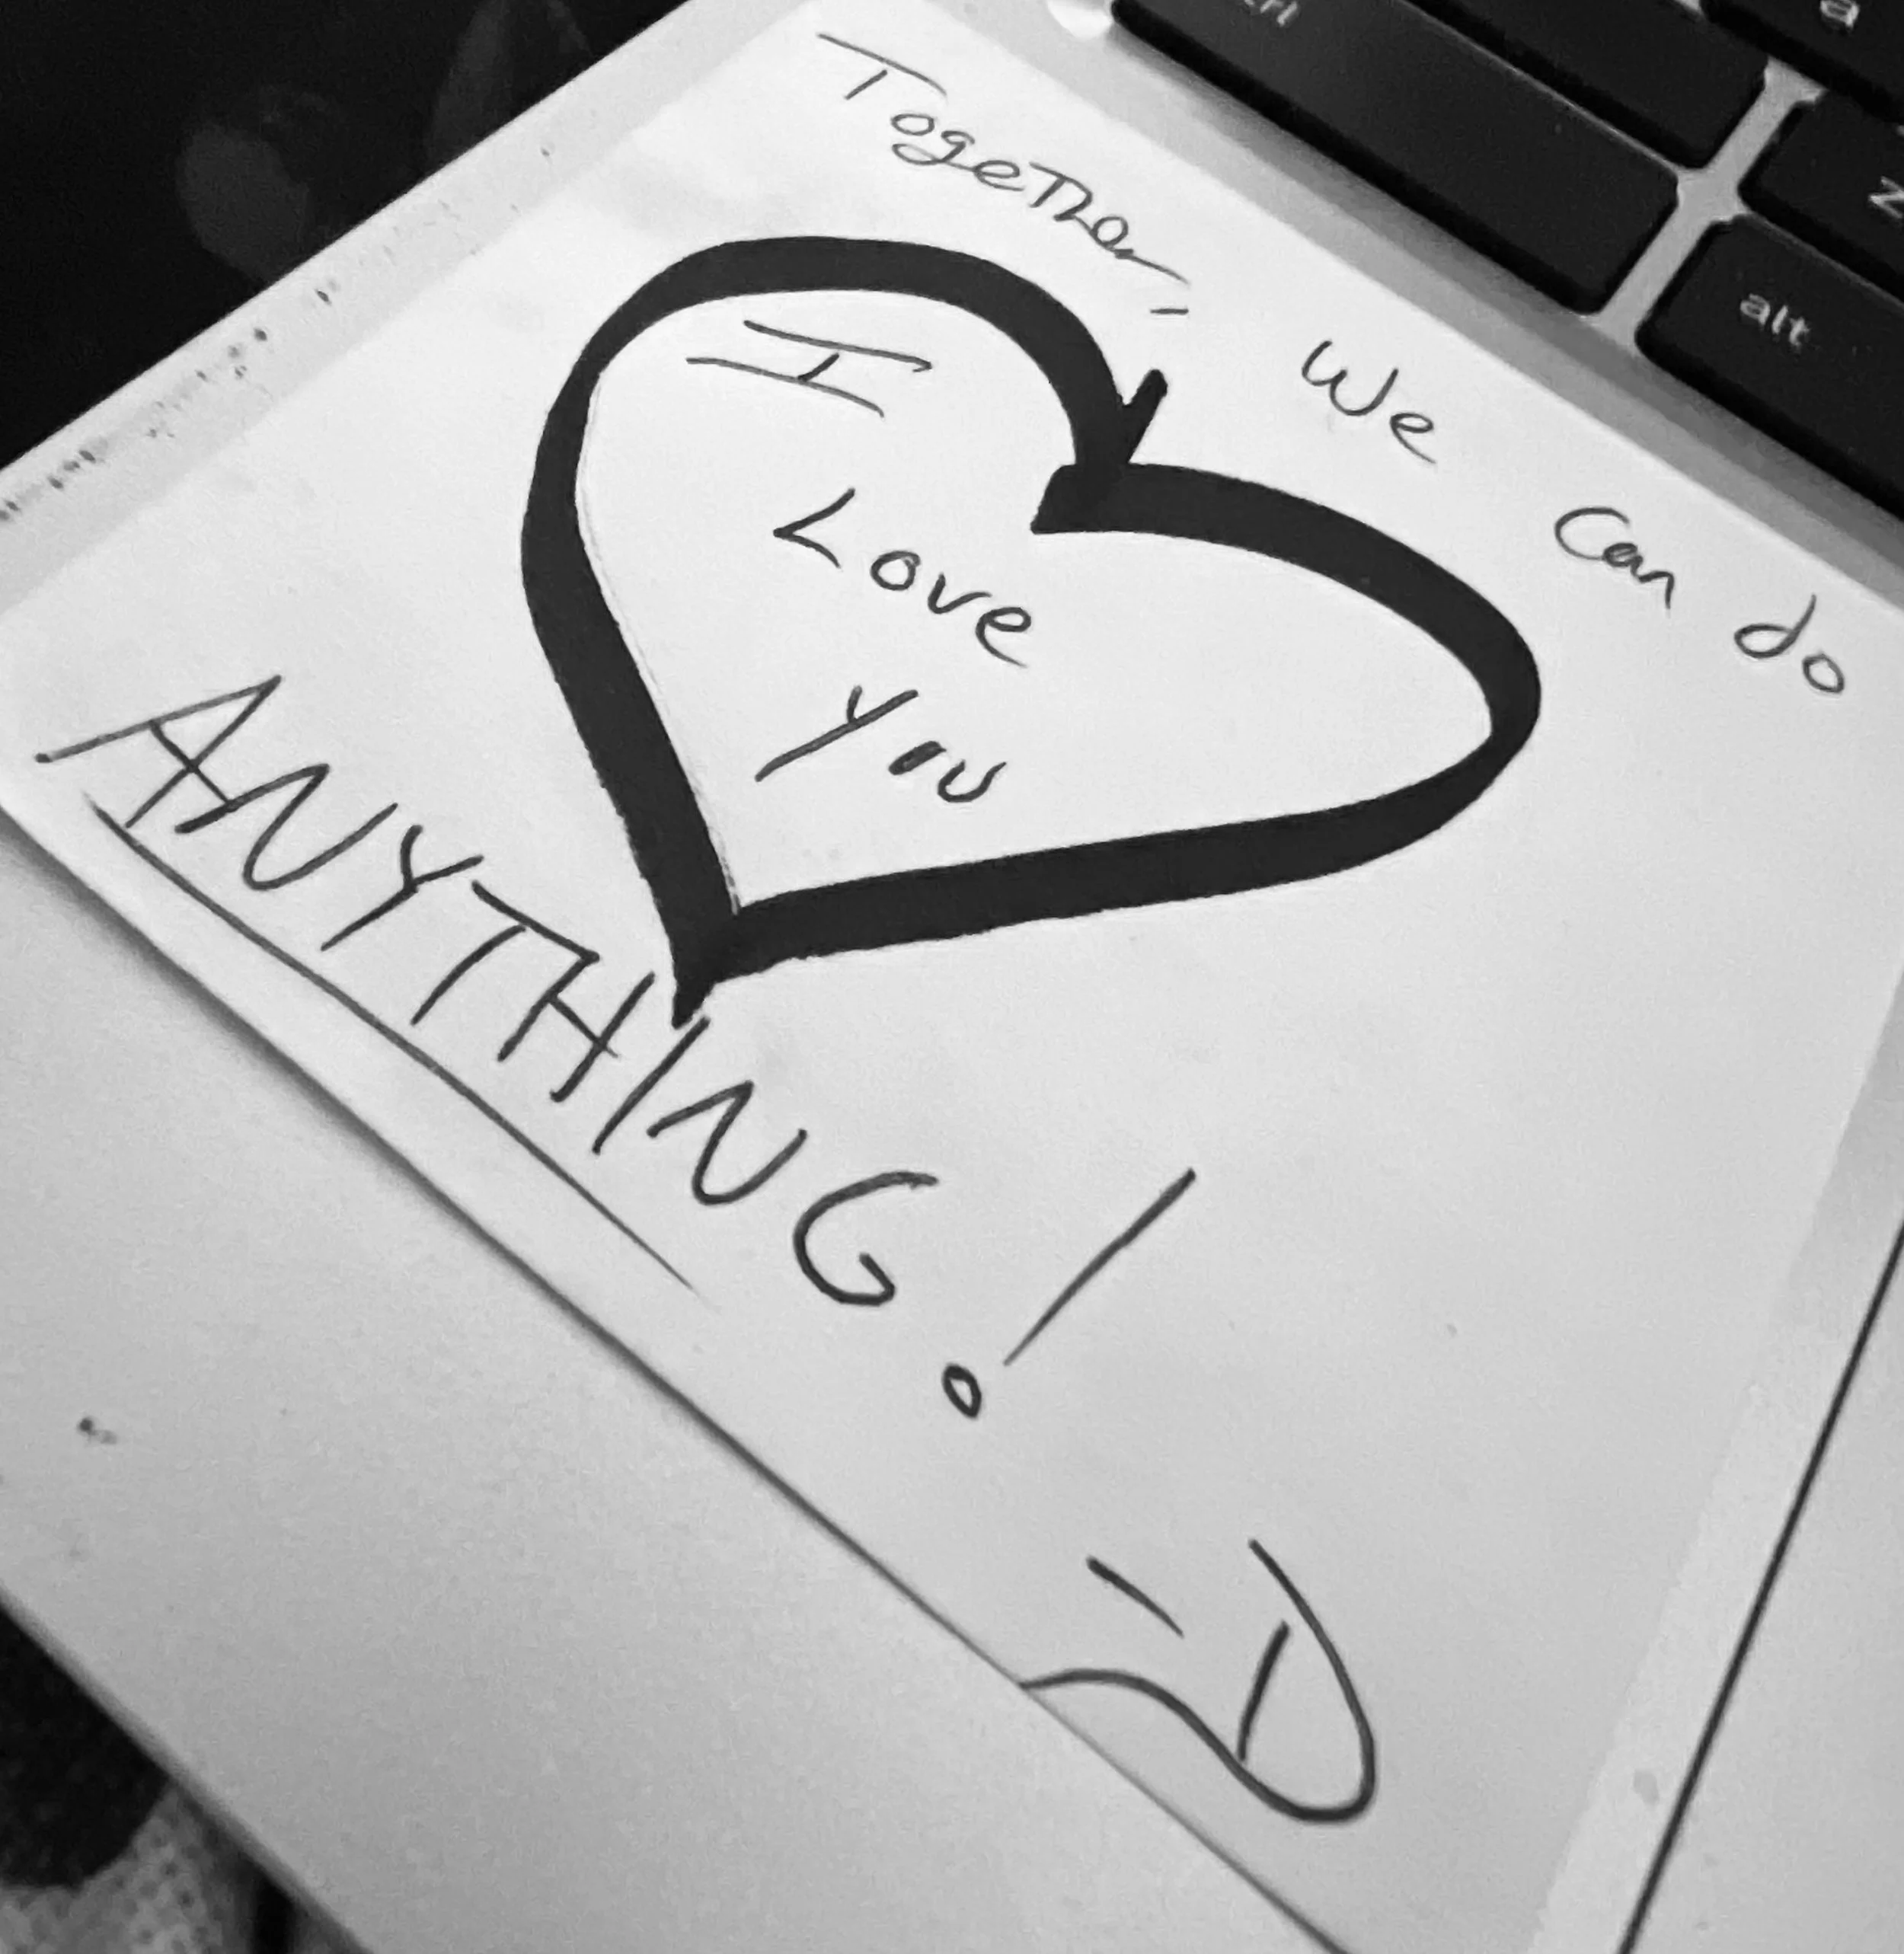 Together, We Can do
I
Love
You
ANYTHING!
-D
ctrl
a
z
alt